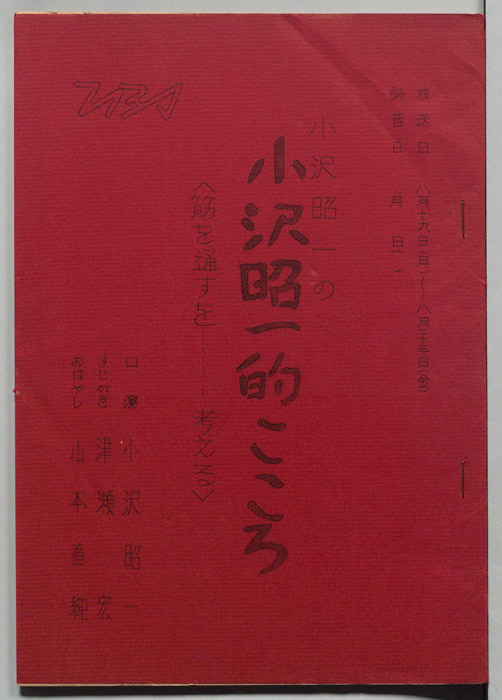 放送日 八月十九日(月)〜八月二十三日(金)
録音日 月 日( )
小沢昭一の
小沢昭一的こころ
〈筋を通すを………考える〉
TBS
口演 小沢昭一
すじがき 津瀬宏
おはやし 山本直純